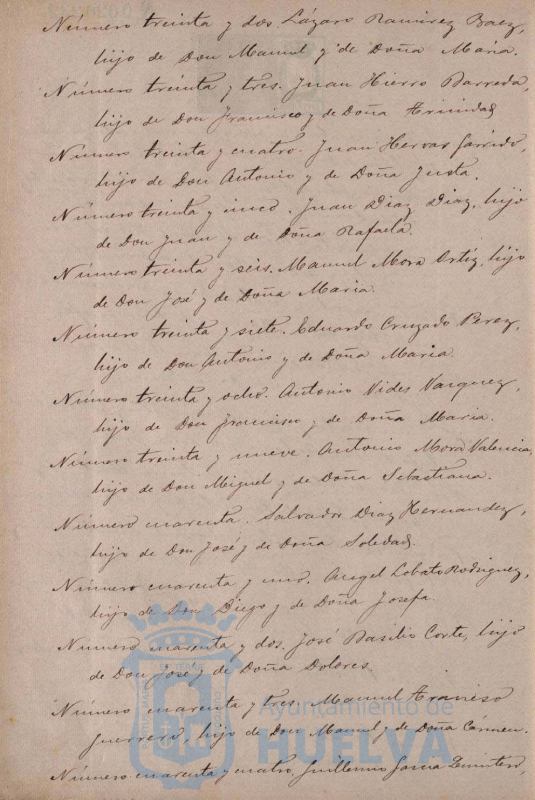 Número treinta y dos. Lázaro Ramirez Baez,
hijo de Don Manuel y de Doña Maria.
Número treinta y tres. Juan Hierro Barreda,
hijo de Don Francisco y de Doña Trinidad
Número treinta y cuatro. Juan Hervas Garrido,
hijo de Don Antonio y de Doña Justa.
Número treinta y cinco. Juan Diaz Diaz, hijo
de Don Juan y de Doña Rafaela.
Número treinta y seis. Manuel Mora Ortiz, hijo
de Don José y de Doña Maria.
Número treinta y siete. Eduardo Cruzado Perez,
hijo de Don Antonio y de Doña Maria.
Número treinta y ocho. Antonio Vides Vazquez,
hijo de Don Francisco y de Doña Maria.
Número treinta y nueve. Antonio Mora Valencia,
hijo de Don Miguel y de Doña Sebastiana.
Número cuarenta. Salvador Diaz Hernandez,
hijo de Don José y de Doña Soledad.
Número cuarenta y uno. Angel Lobato Rodriguez,
hijo de Don Diego y de Doña Josefa.
Número cuarenta y dos. José Basilio Corte, hijo
de Don José y de Doña Dolores.
Número cuarenta y tres. Manuel
Guerrero, hijo de Don Manuel y de Doña Cármen.
Número cuarenta y cuatro, Guillermo Garcia
Ayuntamiento de
HUELVA